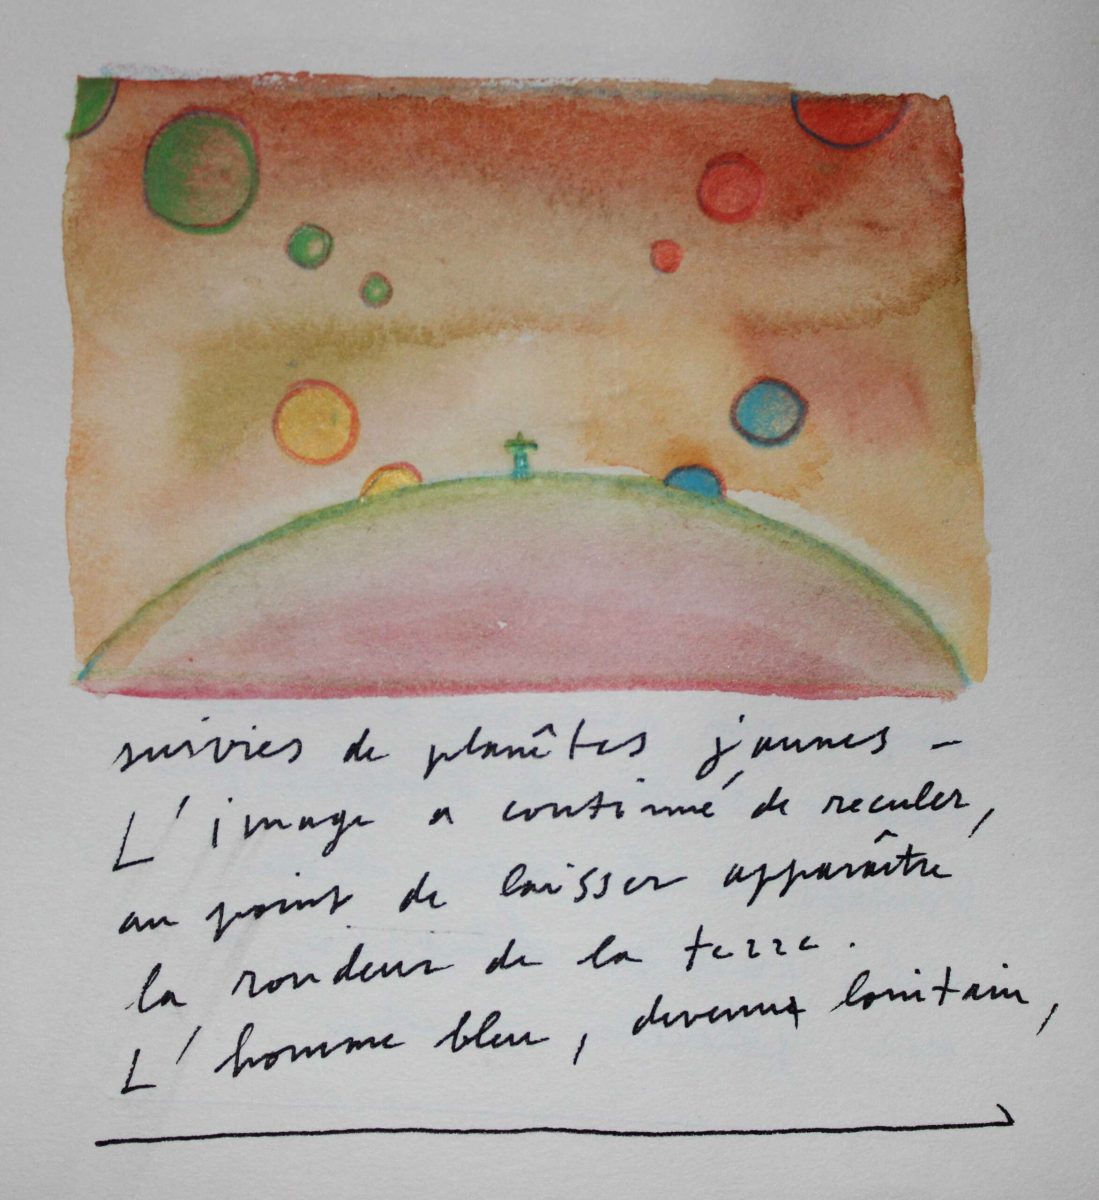 suivies de planètes jaunes –
L'image a continué de reculer,
au point de laisser apparaître
la rondeur de la terre.
L'homme bleu, devenu lointain,